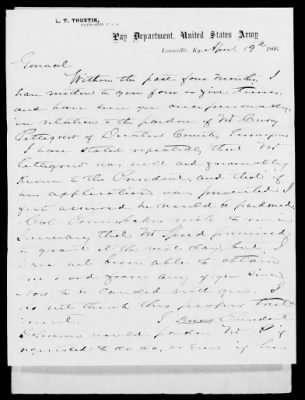 L. T. THUSTIN,
Pay Department, United States Army
Louisville, Ky, April 19th 1866.
General
Within the past four months, I
have written to you four or five times,
and have seen you once personally,
in relation to the pardon of Mr
Pettegrew of County,
I have stated repeatedly that Mr
Pettegrew was well and favorably
known to the President, and that if
an application was presented I
felt assured he would be pardoned
Col wrote to me in
January that Mr Speed promised
to grant it the next day, but I
have not been able to obtain
one word from any of you since
Now, to be candid with you, I
do not think this proper treat-
ment. I know President
Johnson would pardon Mr P if
requested to do so, or even if his